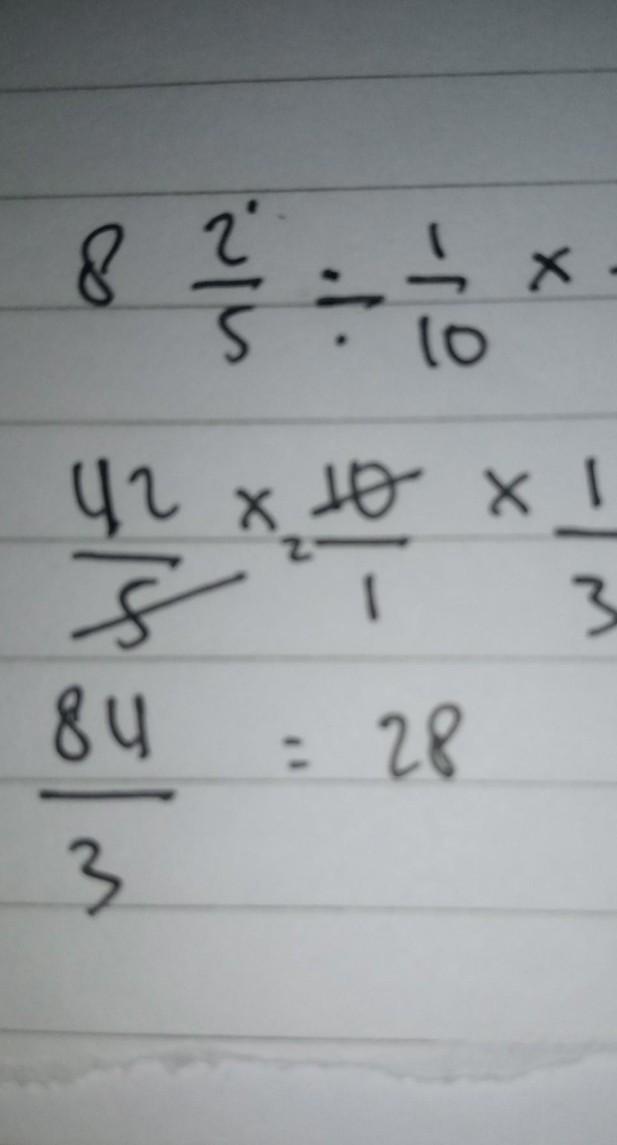 8 2/5 ÷ 1/10 ×
42/5 × 2 10/1 × 1/3
84/3 = 28